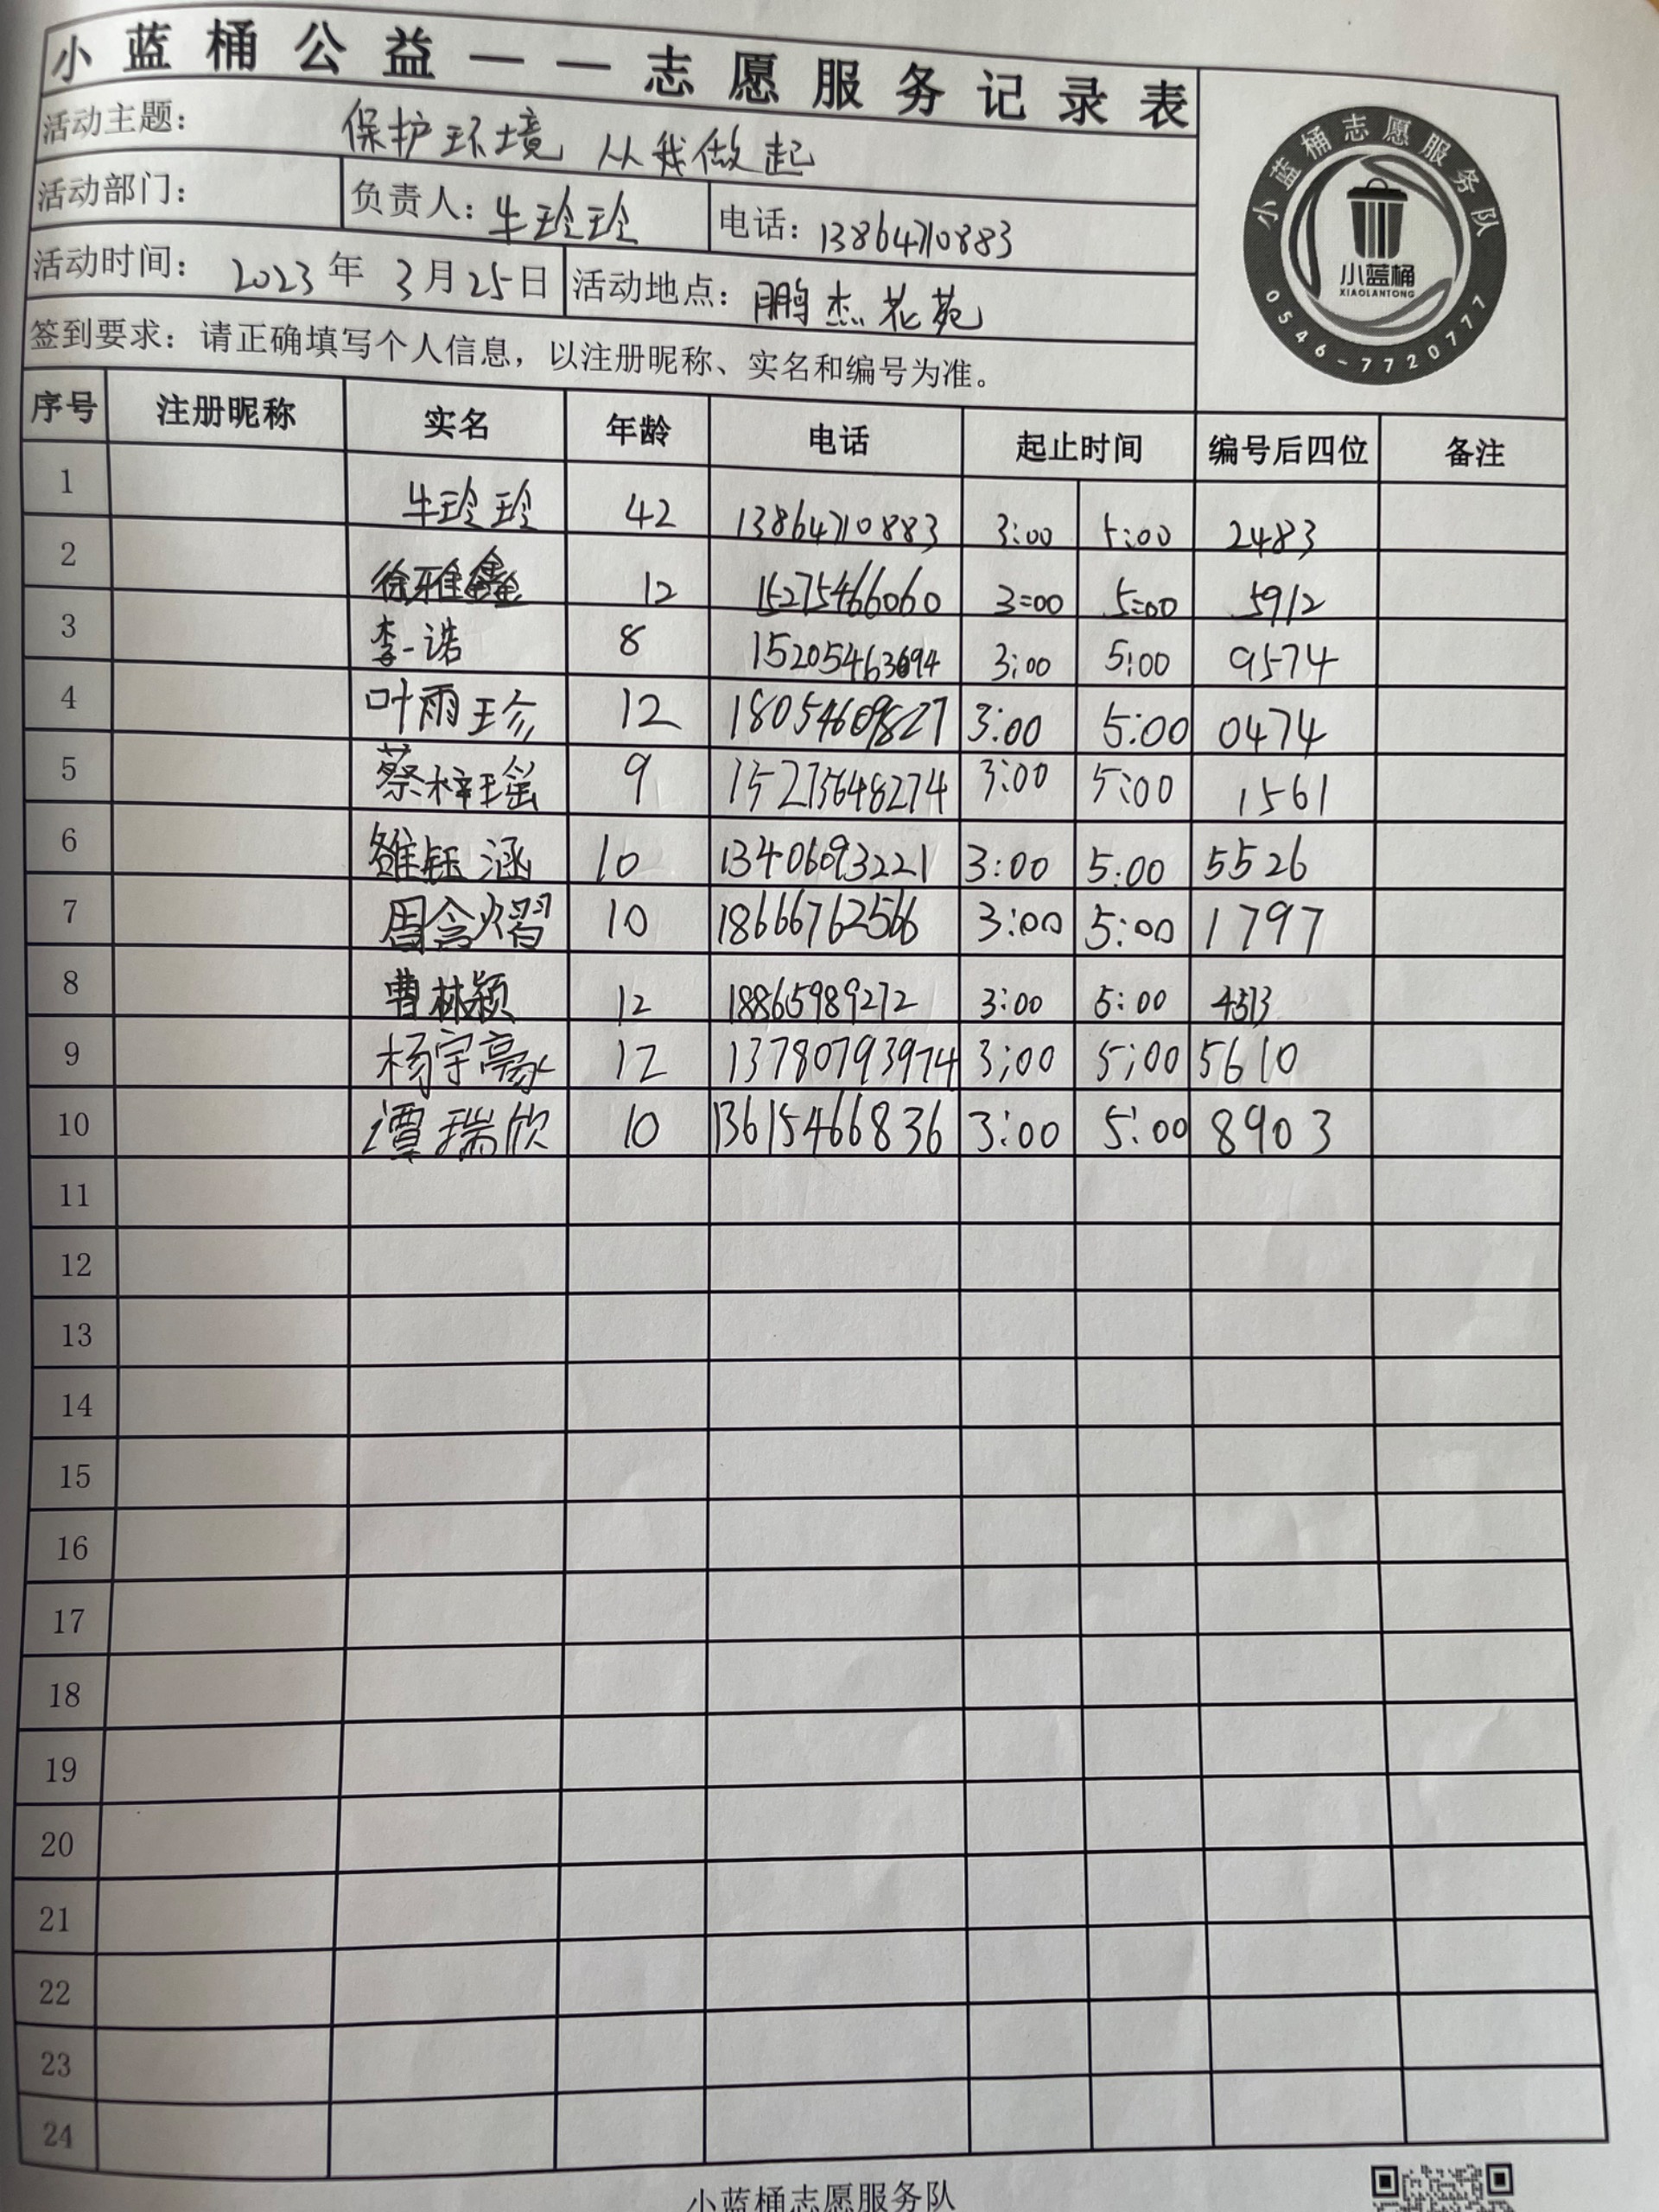 小蓝桶公益——志愿服务记录表
活动主题： 保护环境 从我做起
活动部门： 负责人：牛玲玲 电话：13864710883
活动时间： 2023年3月25日 活动地点：鹏杰花苑
签到要求：请正确填写个人信息，以注册昵称、实名和编号为准。
小蓝桶志愿服务队
小蓝桶
XIAOLANTONG
0546-7720777
序号 注册昵称 实名 年龄 电话 起止时间 编号后四位 备注
1 牛玲玲 42 13864710883 3:00 5:00 2483
2 徐雅鑫 12 15275466060 3:00 5:00 5912
3 李一诺 8 3:00 5:00 9574
4 叶雨珍 12 18054609827 3:00 5:00 0474
5 蔡梓瑶 9 15273648274 3:00 5:00 1561
6 钰涵 10 13406093221 3:00 5:00 5526
7 周含熠 10 18666762566 3:00 5:00 1797
8 曹林颖 12 18865989272 3:00 5:00 4513
9 杨宇豪 12 13780793974 3:00 5:00 5610
10 谭瑞欣 10 13615466836 3:00 5:00 8903
11
12
13
14
15
16
17
18
19
20
21
22
23
24
小蓝桶志愿服务队